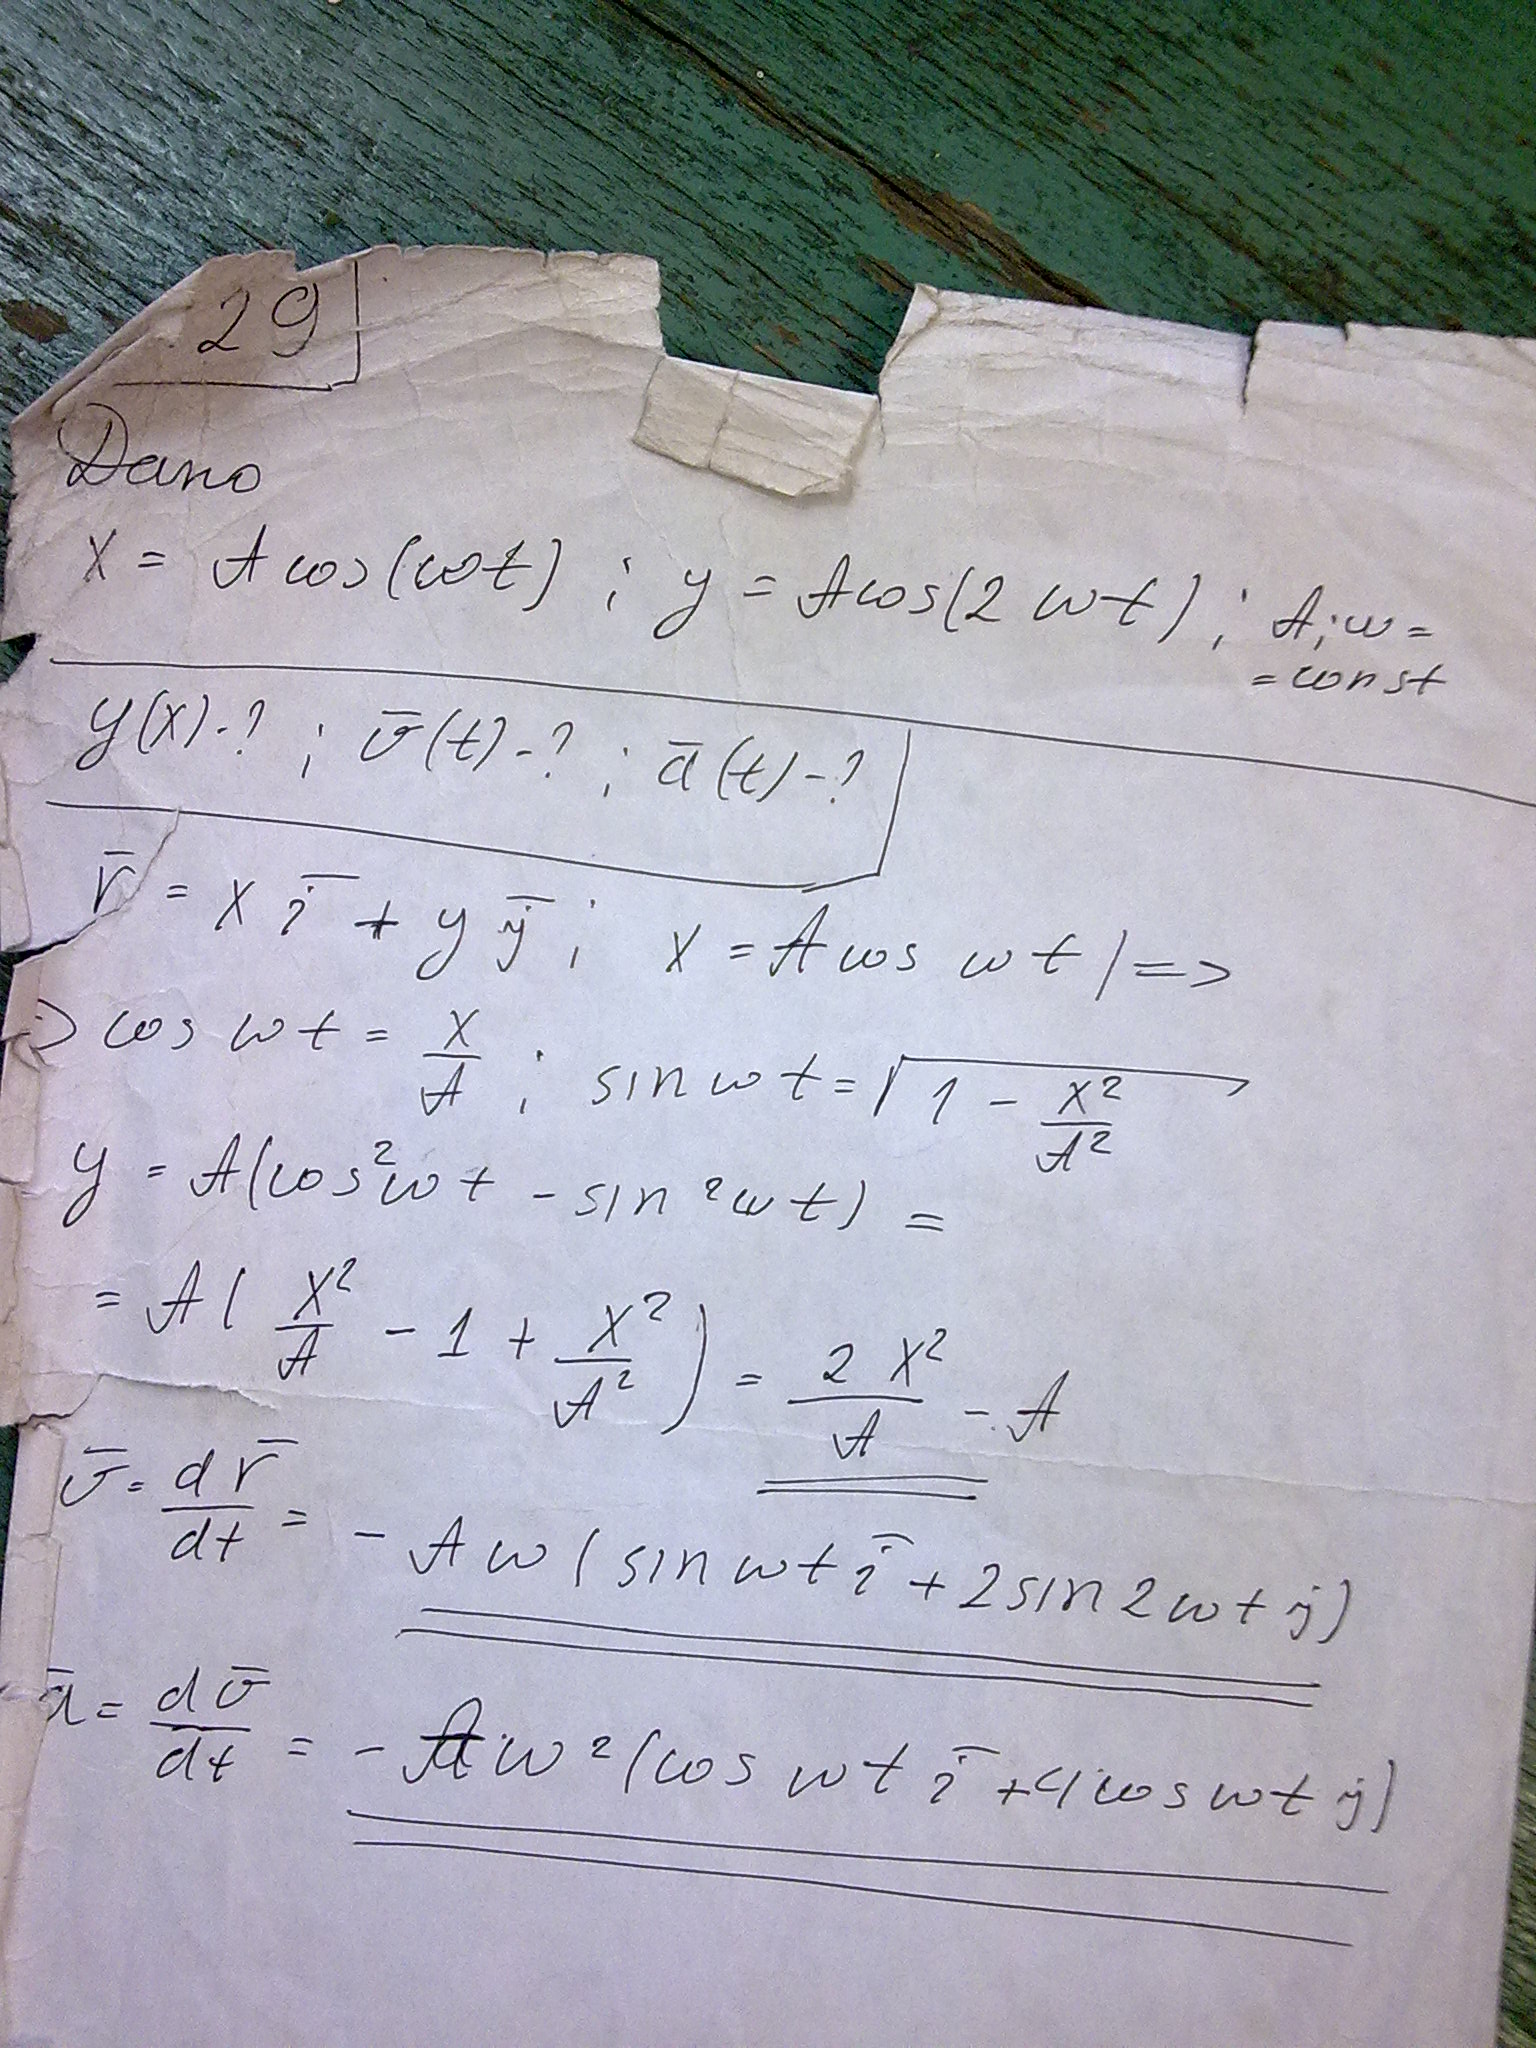 29
Дано
x = A cos(ωt) ; y = A cos(2 ωt) ; A; ω =
= const
y(x) - ? ; v̄(t) - ? ; ā(t) - ?
r̄ = x i̅ + y j̅ ; x = A cos ωt | =>
=> cos ωt = x/A ; sin ωt = √(1 - x²/A²)
y = A(cos²ωt - sin²ωt) =
= A( x²/A - 1 + x²/A² ) = 2x²/A - A
v̄ = dr̄/dt = - Aω(sin ωt i̅ + 2 sin 2ωt j)
ā = dv̄/dt = - Aω²(cos ωt i̅ + 4 cos ωt j)